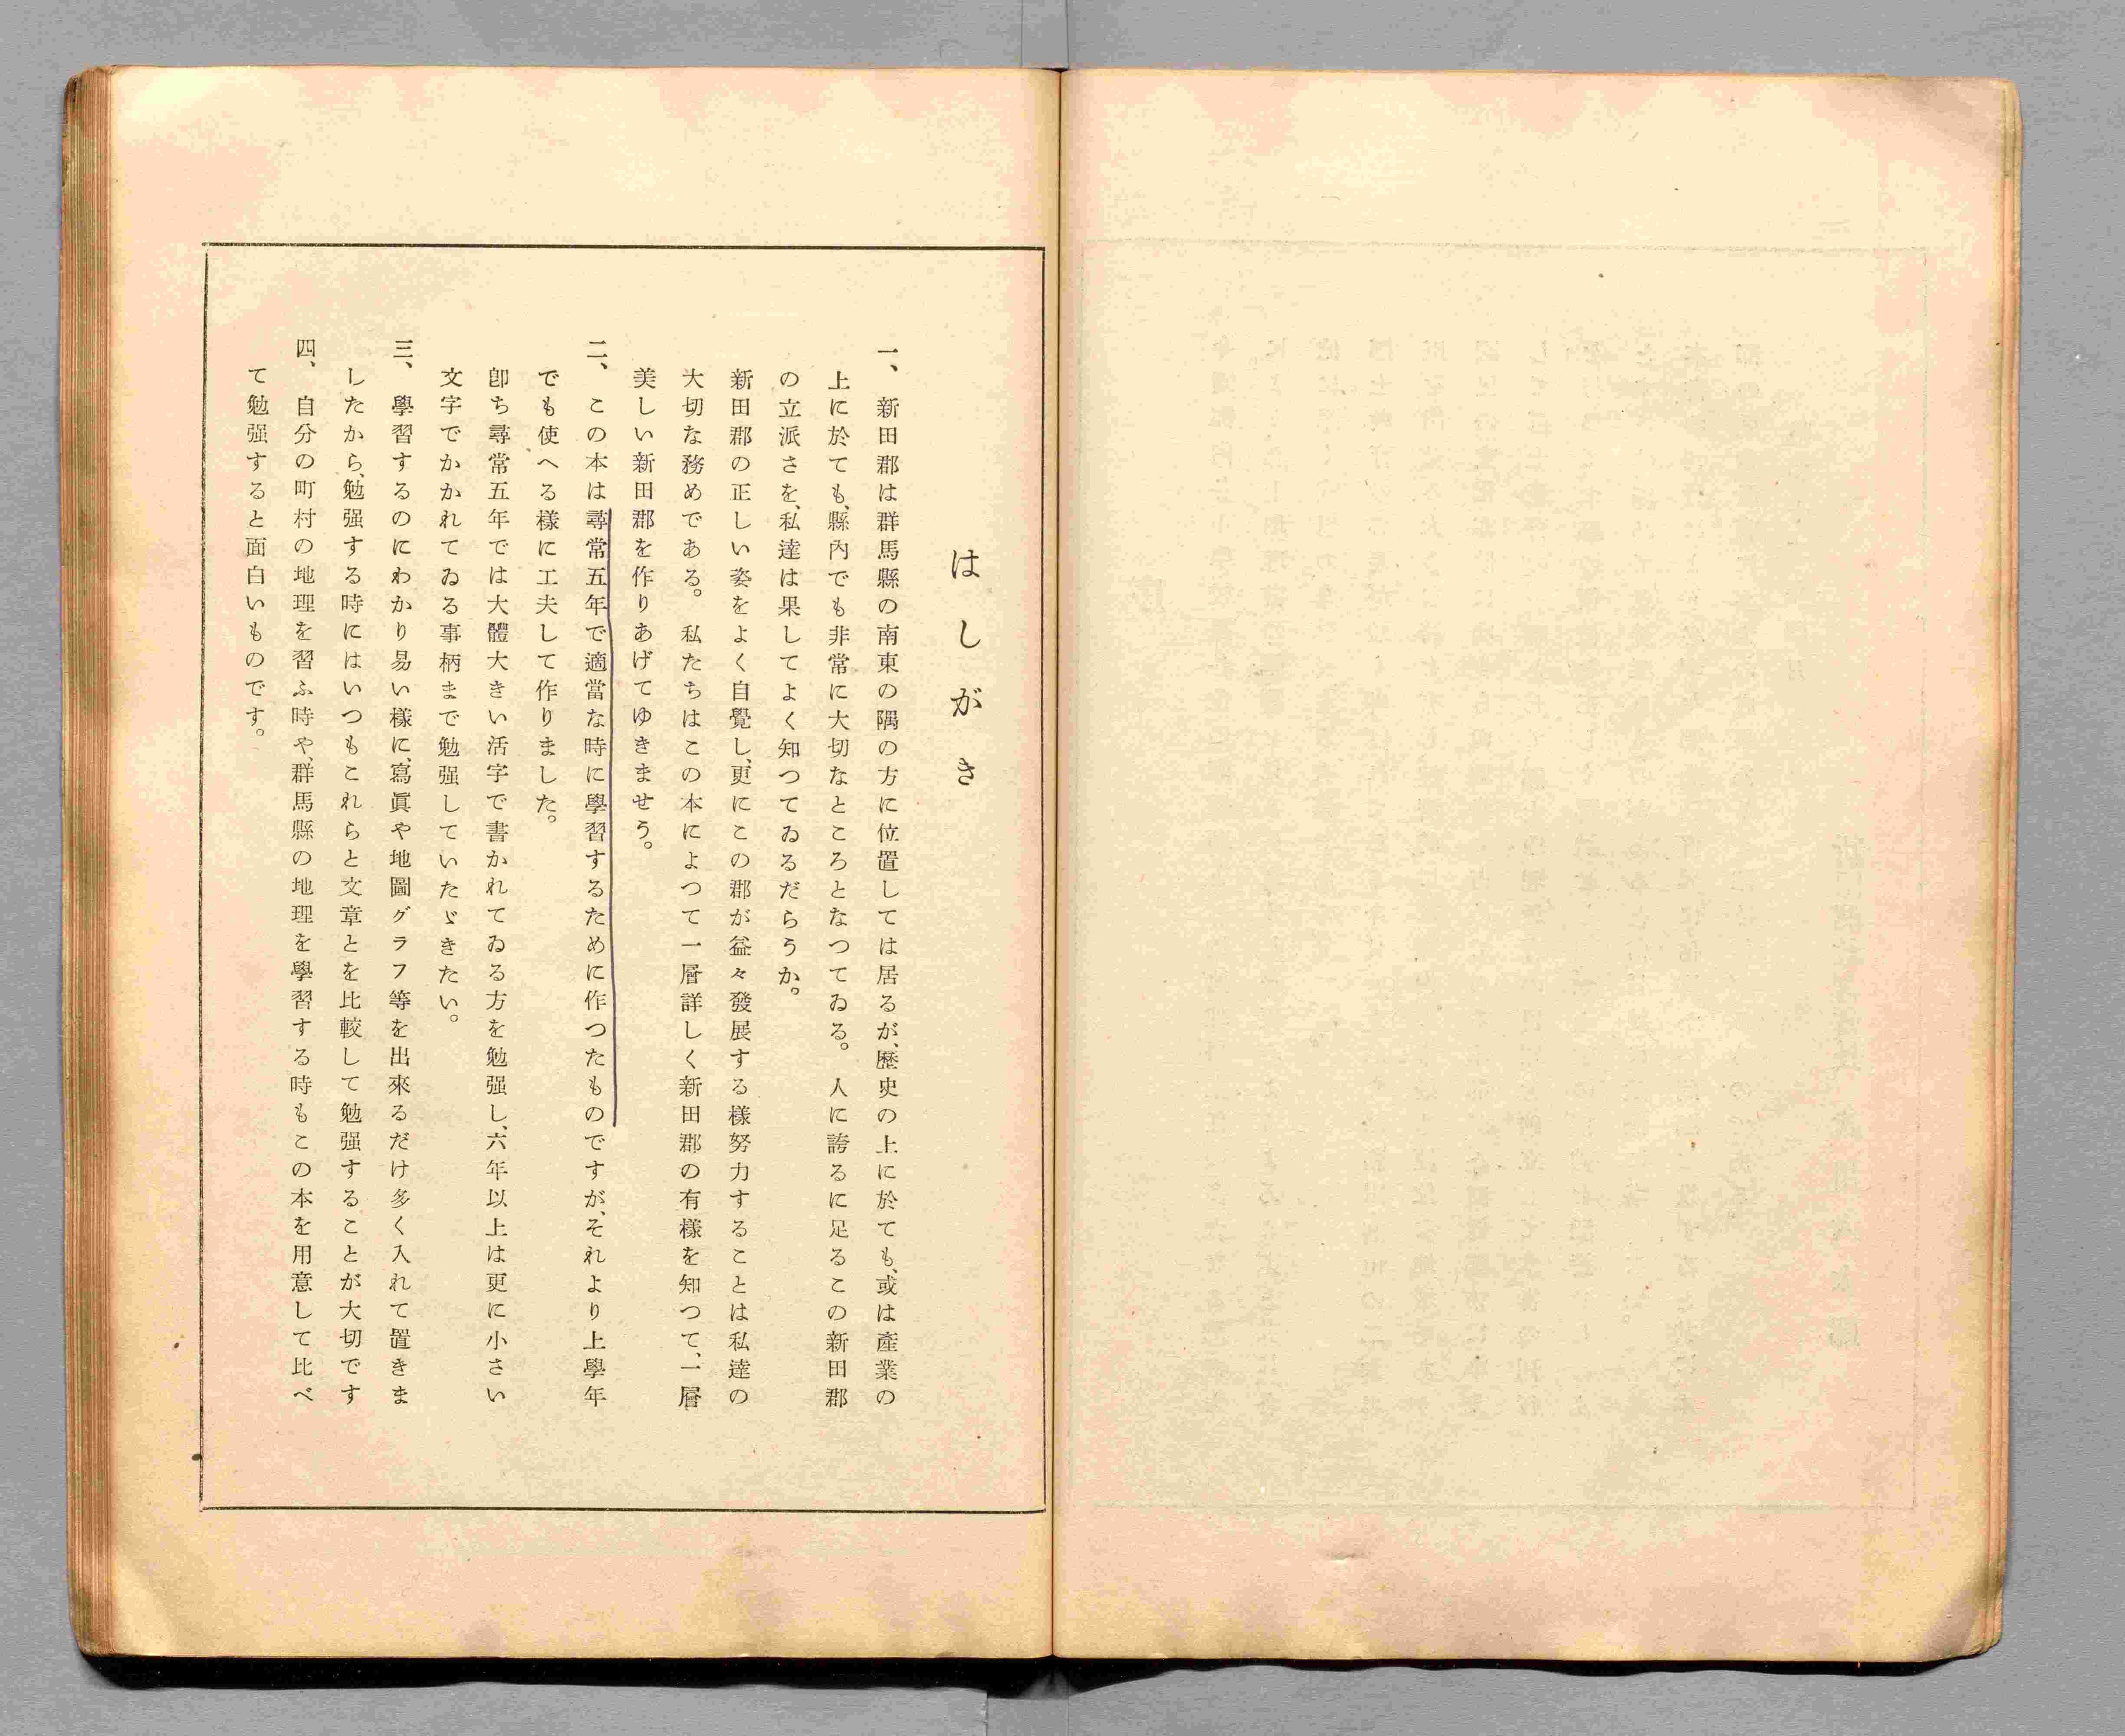 はしがき
一、新田郡は群馬縣の南東の隅の方に位置しては居るが、歷史の上に於ても、或は產業の
上に於ても、縣內でも非常に大切なところとなつてゐる。人に誇るに足るこの新田郡
の立派さを、私達は果してよく知つてゐるだらうか。
新田郡の正しい姿をよく自覺し、更にこの郡が益々發展する樣努力することは私達の
大切な務めである。私たちはこの本によつて一層詳しく新田郡の有樣を知つて、一層
美しい新田郡を作りあげてゆきませう。
二、この本は尋常五年で適當な時に學習するために作つたものですが、それより上學年
でも使へる樣に工夫して作りました。
卽ち尋常五年では大體大きい活字で書かれてゐる方を勉强し、六年以上は更に小さい
文字でかかれてゐる事柄まで勉强していたゞきたい。
三、學習するのにわかり易い樣に、寫眞や地圖グラフ等を出來るだけ多く入れて置きま
したから、勉强する時にはいつもこれらと文章とを比較して勉强することが大切です
四、自分の町村の地理を習ふ時や、群馬縣の地理を學習する時もこの本を用意して比べ
て勉强すると面白いものです。